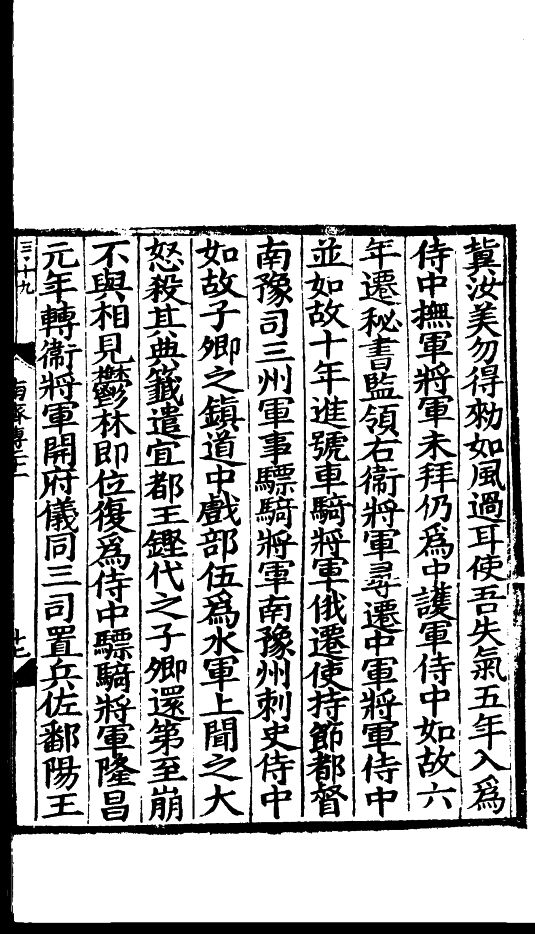 冀汝美勿得勑如風過耳使吾失氣五年入爲
侍中撫軍將軍未拜仍爲中護軍侍中如故六
年遷秘書監領右衞將軍尋遷中軍將軍侍中
並如故十年進號車騎將軍俄遷使持節都督
南豫司三州軍事驃騎將軍南豫州刺史侍中
如故子卿之鎮道中戲部伍爲水軍上聞之大
怒殺其典籤遣宜都王鏗代之子卿還第至崩
不與相見鬱林即位復爲侍中驃騎將軍隆昌
元年轉衞將軍開府儀同三司置兵佐鄱陽王
三十九